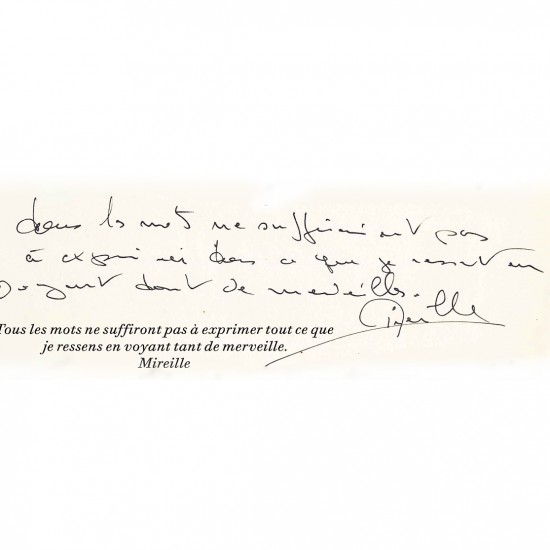 Tous les mots ne suffiraient pas
à exprimer tous ce que je ressent en
voyant tant de merveilles.
Mireille
Tous les mots ne suffiront pas à exprimer tout ce que
je ressens en voyant tant de merveille.
Mireille